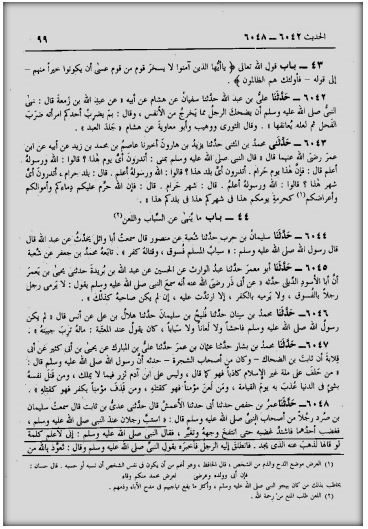 الحديث ٦٠٤٢ – ٦٠٤٨
٩٩
٤٣ – باب قول الله تعالى ﴿ ياأيها الذين آمنوا لا يسخر قوم من قوم عسى أن يكونوا خيراً منهم –
إلى قوله – فأولئك هم الظالمون ﴾
٦٠٤٢ – حدثنا علي بن عبد الله حدثنا سفيان عن هشام عن أبيه « عن عبد الله بن زمعة قال : نهى
النبي صلى الله عليه وسلم أن يضحك الرجل مما يخرج من الأنفس ، وقال : بم يضرب أحدكم امرأته ضرب
الفحل ثم لعله يعانقها » . وقال الثوري ووهيب وأبو معاوية عن هشام « جلد العبد » .
٦٠٤٣ – حدثني محمد بن المثنى حدثنا يزيد بن هارون أخبرنا عاصم بن محمد بن زيد عن أبيه عن ابن
عمر رضي الله عنهما قال « قال النبي صلى الله عليه وسلم بمنى : أتدرون أي يوم هذا ؟ قالوا : الله ورسوله
أعلم . قال : فإن هذا يوم حرام . أتدرون أي بلد هذا ؟ قالوا : الله ورسوله أعلم . قال : بلد حرام ، أتدرون أي
شهر هذا ؟ قالوا : الله ورسوله أعلم . قال : شهر حرام . قال : فإن الله حرم عليكم دماءكم وأموالكم
وأعراضكم(١) كحرمة يومكم هذا في شهركم هذا في بلدكم هذا » .
٤٤ – باب ما ينهى عن السباب واللعن(٢)
٦٠٤٤ – حدثنا سليمان بن حرب حدثنا شعبة عن منصور قال سمعت أبا وائل يحدث عن عبد الله قال
قال رسول الله صلى الله عليه وسلم : « سباب المسلم فسوق ، وقتاله كفر » . تابعه محمد بن جعفر عن شعبة
٦٠٤٥ – حدثنا أبو معمر حدثنا عبد الوارث عن الحسين عن عبد الله بن بريدة حدثني يحيى بن يعمر
أن أبا الأسود الديلي حدثه « عن أبي ذر رضي الله عنه أنه سمع النبي صلى الله عليه وسلم يقول : لا يرمي رجل
رجلاً بالفسوق ، ولا يرميه بالكفر ، إلا ارتدت عليه ، إن لم يكن صاحبه كذلك » .
٦٠٤٦ – حدثنا محمد بن سنان حدثنا فليح بن سليمان حدثنا هلال بن علي عن أنس قال « لم يكن
رسول الله صلى الله عليه وسلم فاحشاً ولا لعاناً ولا سباباً ، كان يقول عند المعتبة : ماله ترب جبينه » .
٦٠٤٧ – حدثنا محمد بن بشار حدثنا عثمان بن عمر حدثنا علي بن المبارك عن يحيى بن أبي كثير عن أبي
قلابة أن ثابت بن الضحاك – وكان من أصحاب الشجرة – حدثه أن رسول الله صلى الله عليه وسلم قال
« من حلف على ملة غير الإسلام كاذباً فهو كما قال ، وليس على ابن آدم نذر فيما لا يملك ، ومن قتل نفسه
بشيء في الدنيا عذب به يوم القيامة ، ومن لعن مؤمناً فهو كقتله ، ومن قذف مؤمناً بكفر فهو كقتله » .
٦٠٤٨ – حدثنا عمر بن حفص حدثنا أبي حدثنا الأعمش قال حدثني عدي بن ثابت قال سمعت سليمان
بن صرد رجلاً من أصحاب النبي صلى الله عليه وسلم قال : « استب رجلان عند النبي صلى الله عليه وسلم ،
فغضب أحدهما فاشتد غضبه حتى انتفخ وجهه وتغير ، فقال النبي صلى الله عليه وسلم : إني لأعلم كلمة
لو قالها لذهب عنه الذي يجد . فانطلق إليه الرجل فأخبره بقول النبي صلى الله عليه وسلم وقال : تعوذ بالله من
(١) العرض موضع المدح والذم من الشخص ، قال الحافظ ، وهو أعم من أن يكون في نفس الشخص أو نسبه أو حسبه . قال حسان :
فإن أبي ووالده وعرضي لعرض محمد منكم وقاء
يخاطب بذلك من كان يهجو النبي صلى الله عليه وسلم ،
(٢) اللعن طلب المنع من رحمة الله .